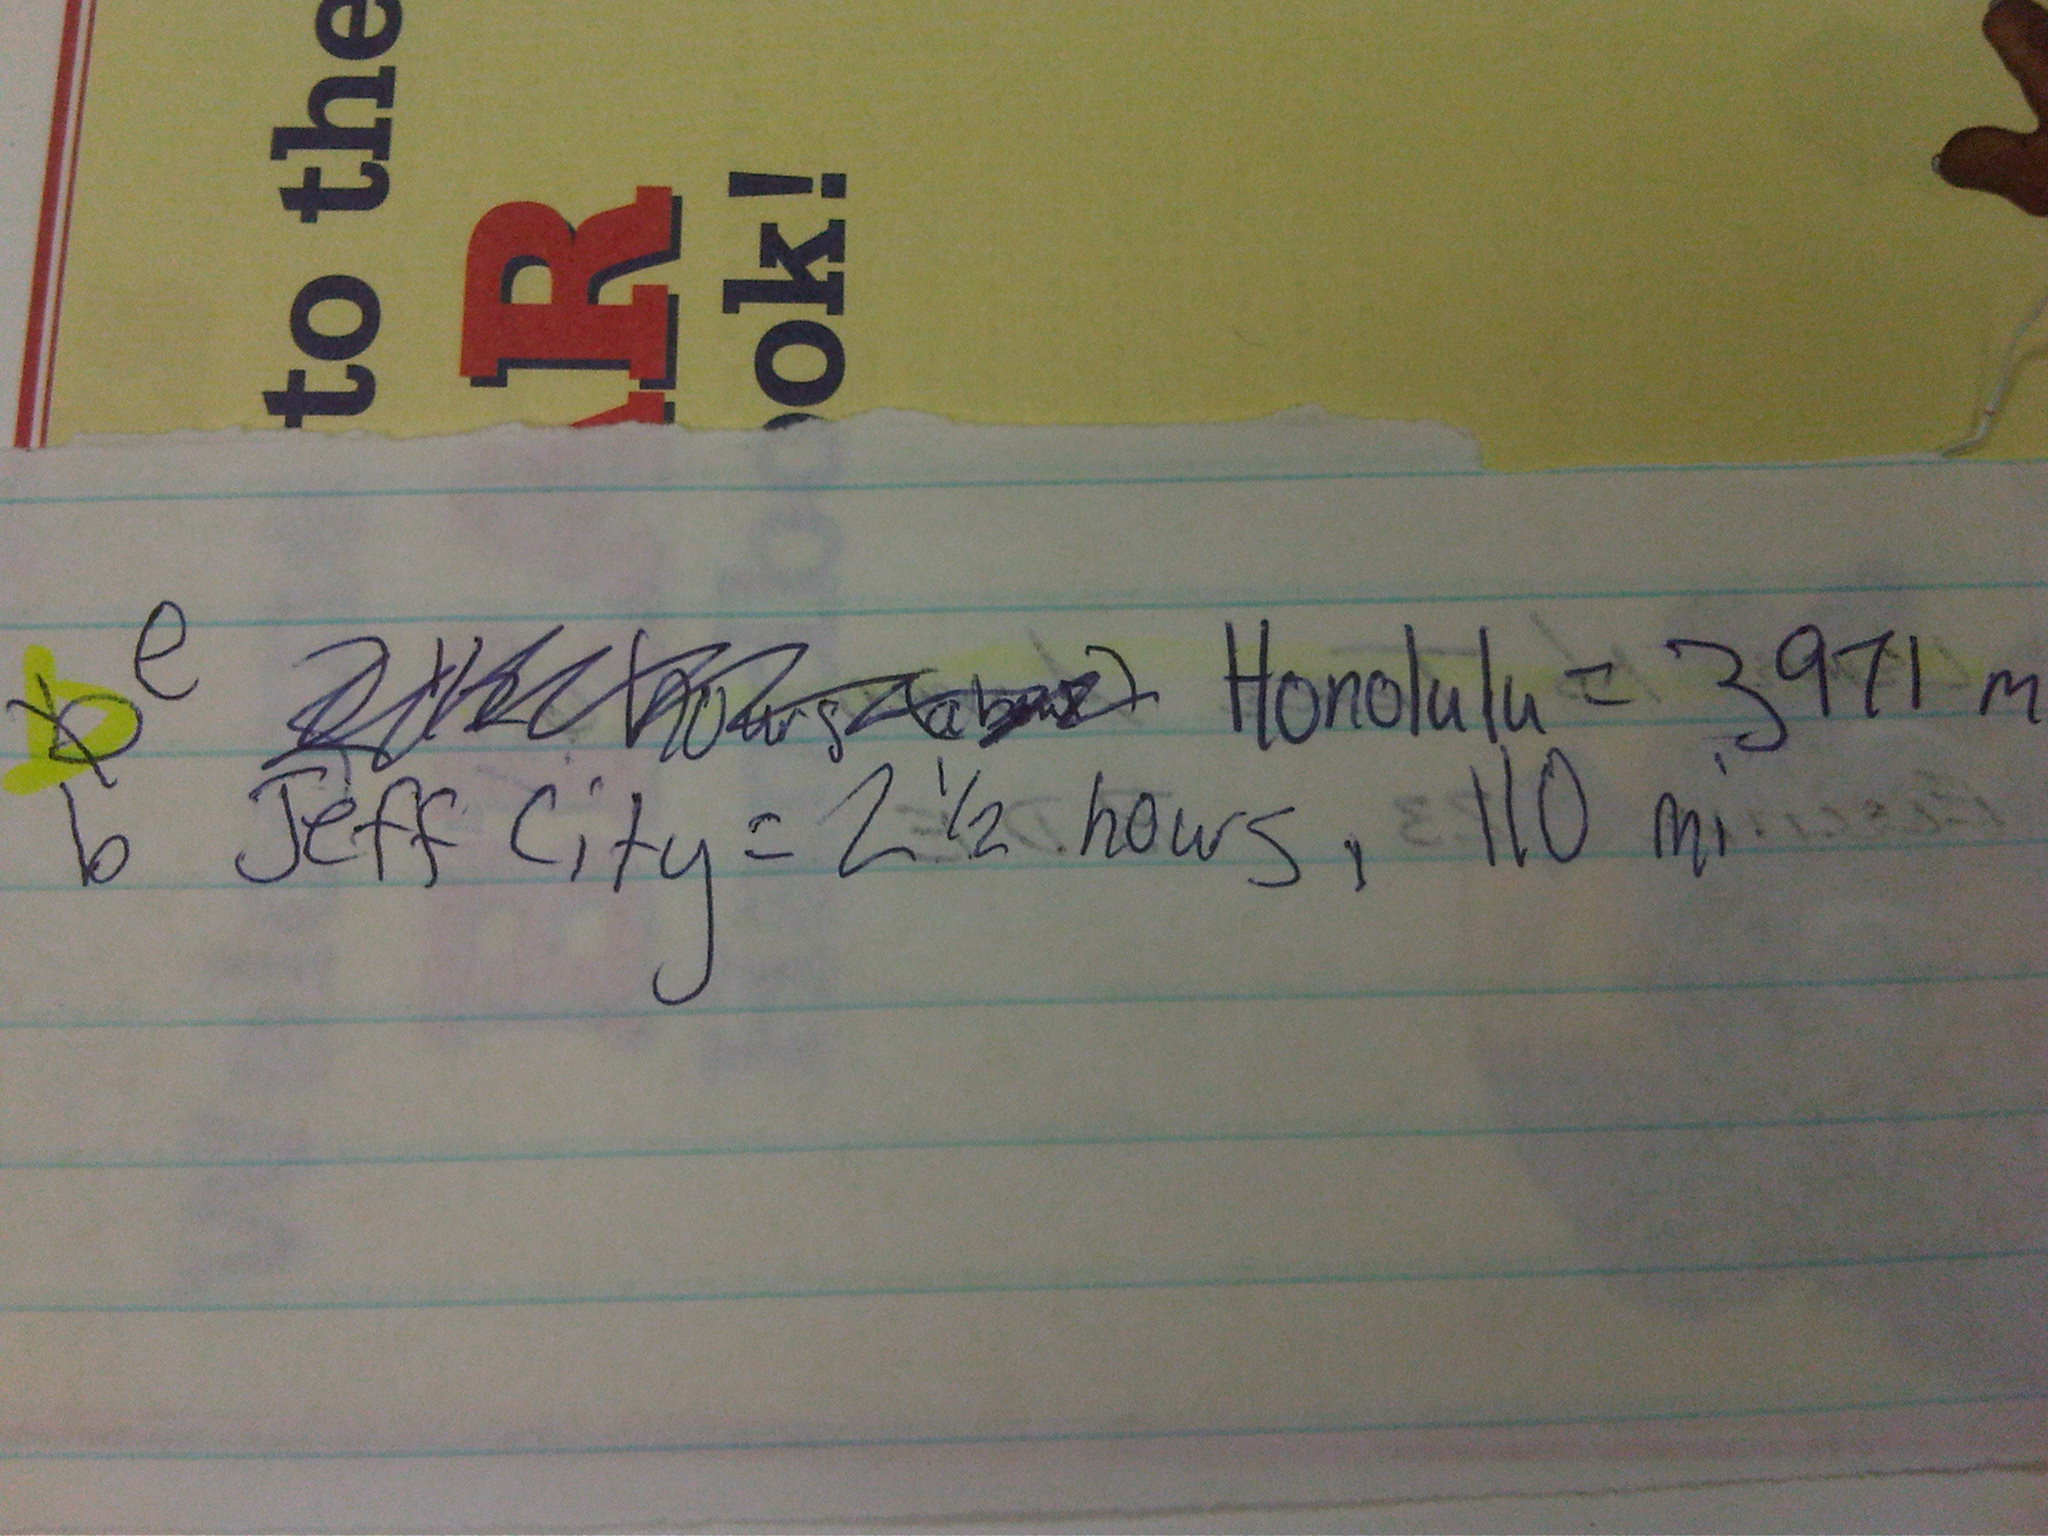 to the
R
ook!
e Honolulu = 3971 m
b Jeff City = 2 1/2 hours, 110 mi